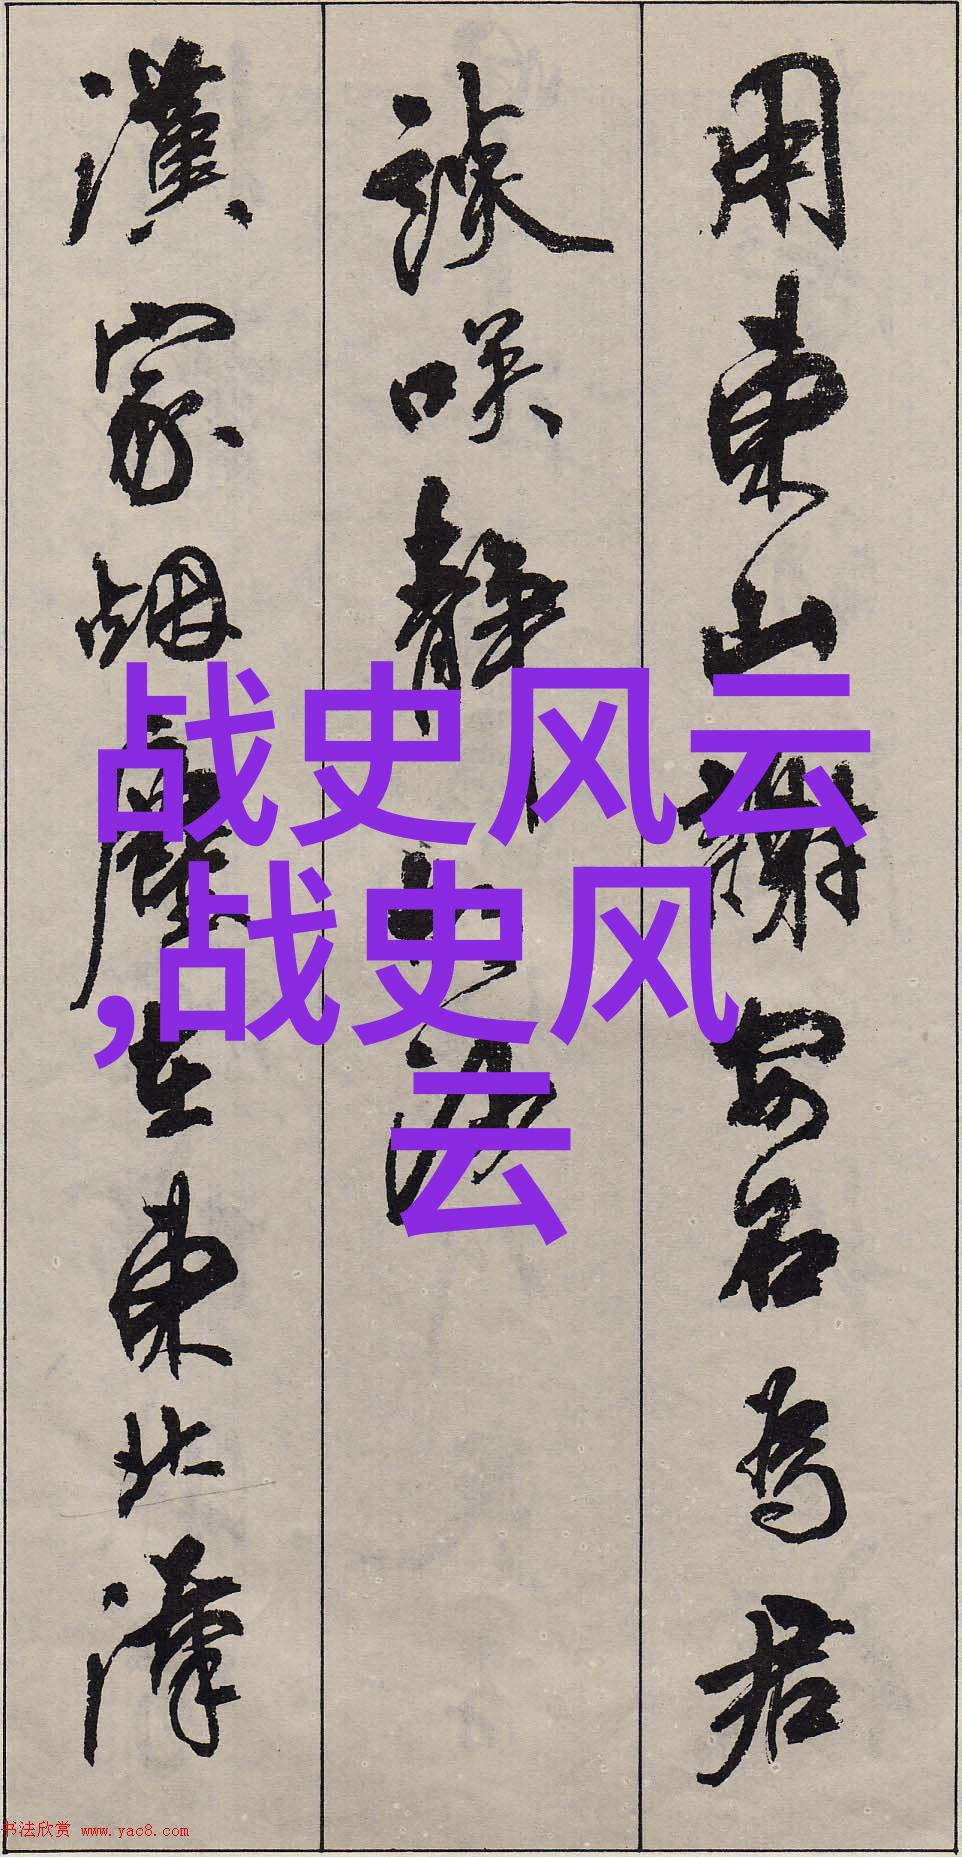 用東山謝安石為君
談咲静胡沙
漢家烟塵在東北漢
战史风云
,战史风
云
书法欣赏 www.yac8.com